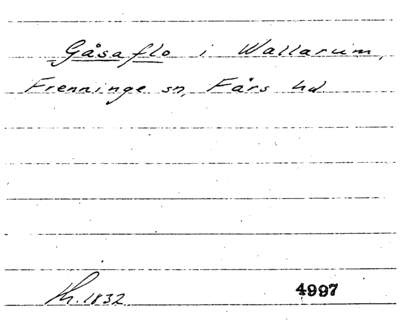 Gåsaflo i Wallarum,
Frenninge sn, Färs hd
Kh. 1832 4997